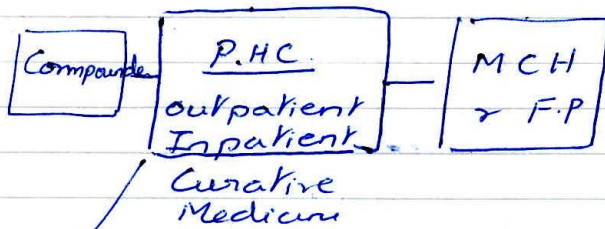 Compounder
P.HC.
outpatient
Inpatient
Curative
Medicine
MCH
& F.P